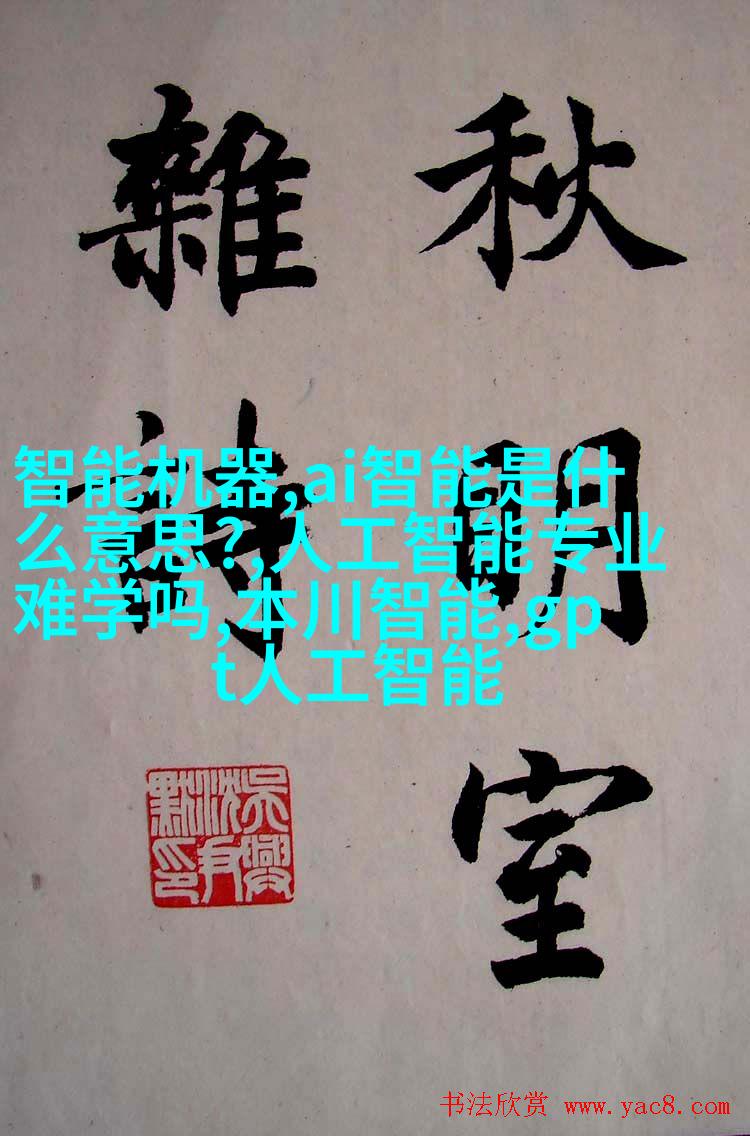 秋明室
雜詩
智能机器,ai智能是什
么意思?,人工智能专业
难学吗,本川智能,gp
t人工智能
吴兴沈尹默印
书法欣赏 www.yac8.com